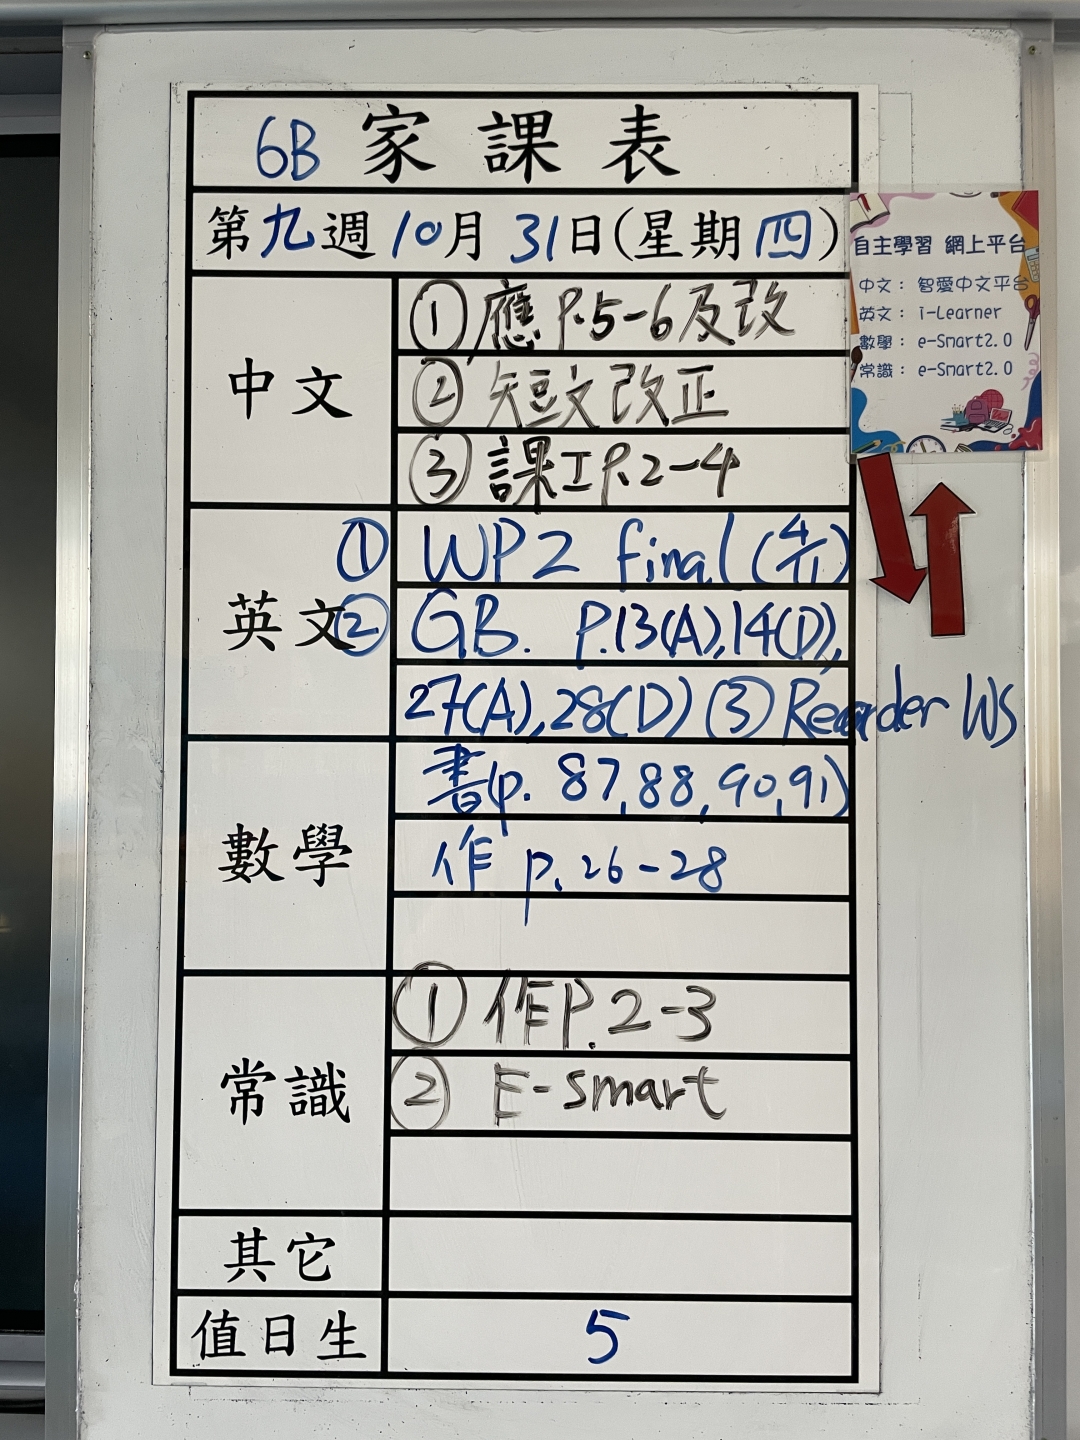 6B 家課表
第九週 10月 31日(星期四)
自主學習 網上平台
中文： 智愛中文平台
英文： i-Learner
數學： e-Smart2.0
常識： e-Smart2.0
中文
① 應 P.5-6及改
② 短文改正
③ 課工P.2-4
英文
① WP2 final (4/11)
② GB. P.13(A),14(D),
27(A),28(D) ③ Reader WS
數學
書(p. 87,88,90,91)
作 p.26-28
常識
① 作P.2-3
② E-smart
其它
值日生 5